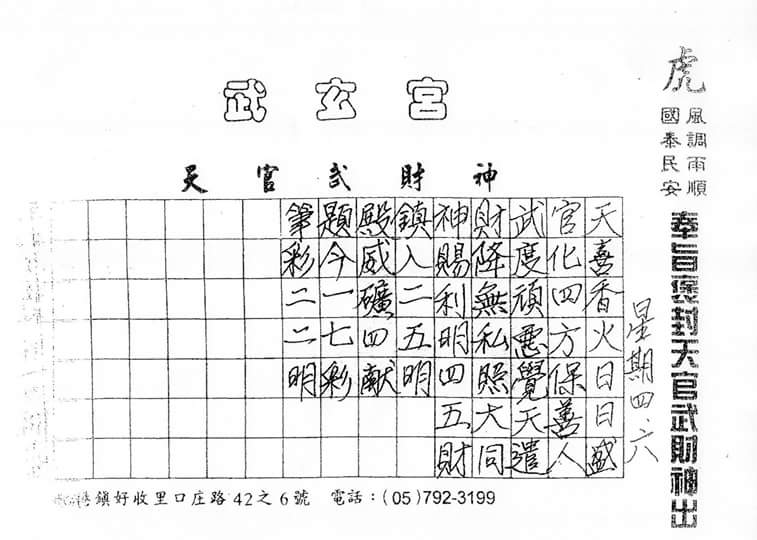 武玄宮
天官武財神
虎
風調雨順
國泰民安
奉旨褒封天官武財神出
星期四、六
天喜香火日日盛
官化四方保善人
武度頑惡覺天遣
財降無私照大同
神賜利明四五財
鎮入二五明
殿威礦四献
題今一七彩
筆彩二二明
鎮好收里口庄路42之6號 電話：(05)792-3199